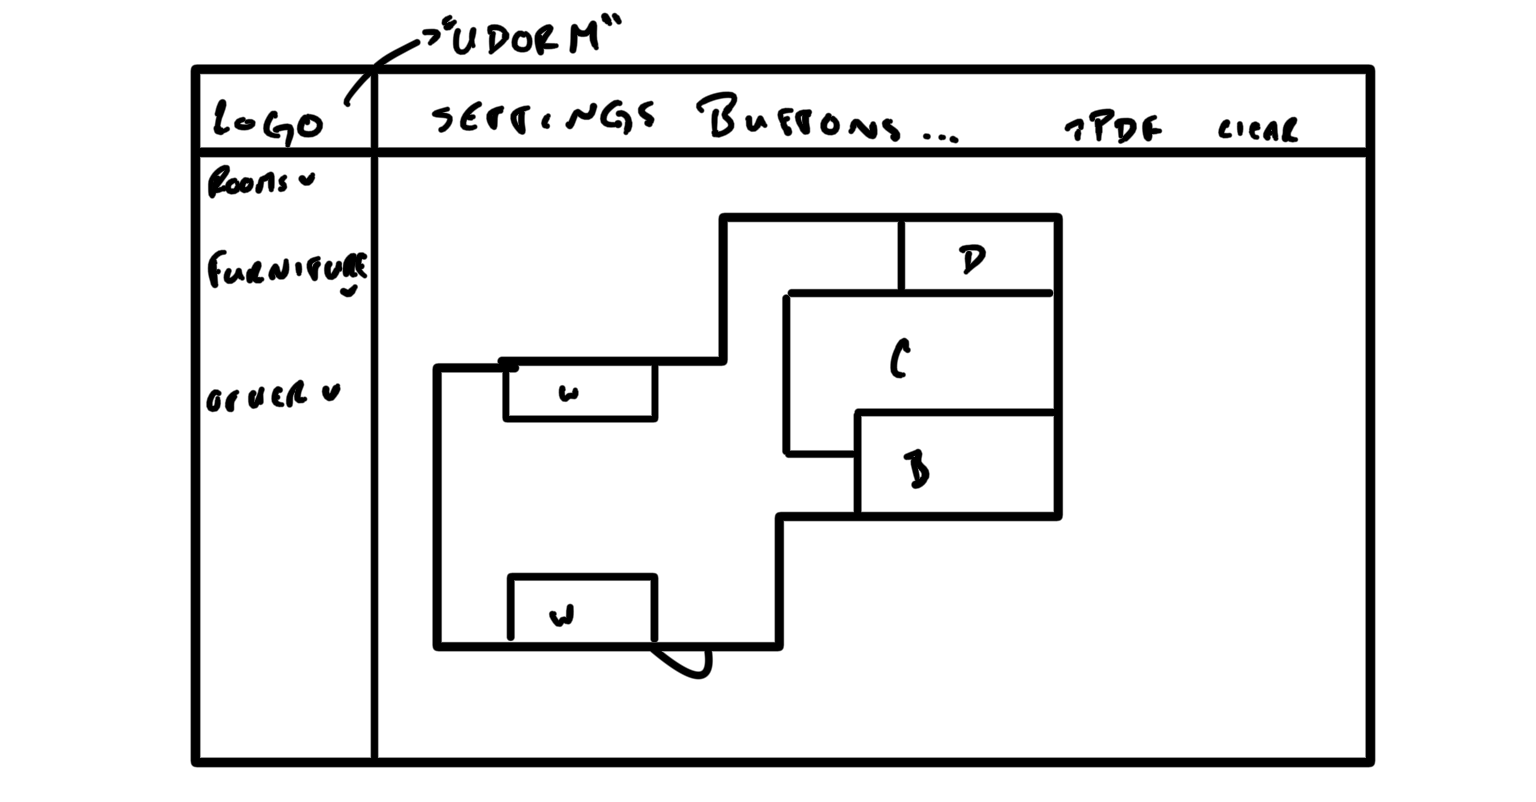 →"UDORM"
LOGO
SETTINGS BUTTONS...
↑PDF
CLEAR
ROOMS
FURNITURE
OTHER
D
C
W
B
W